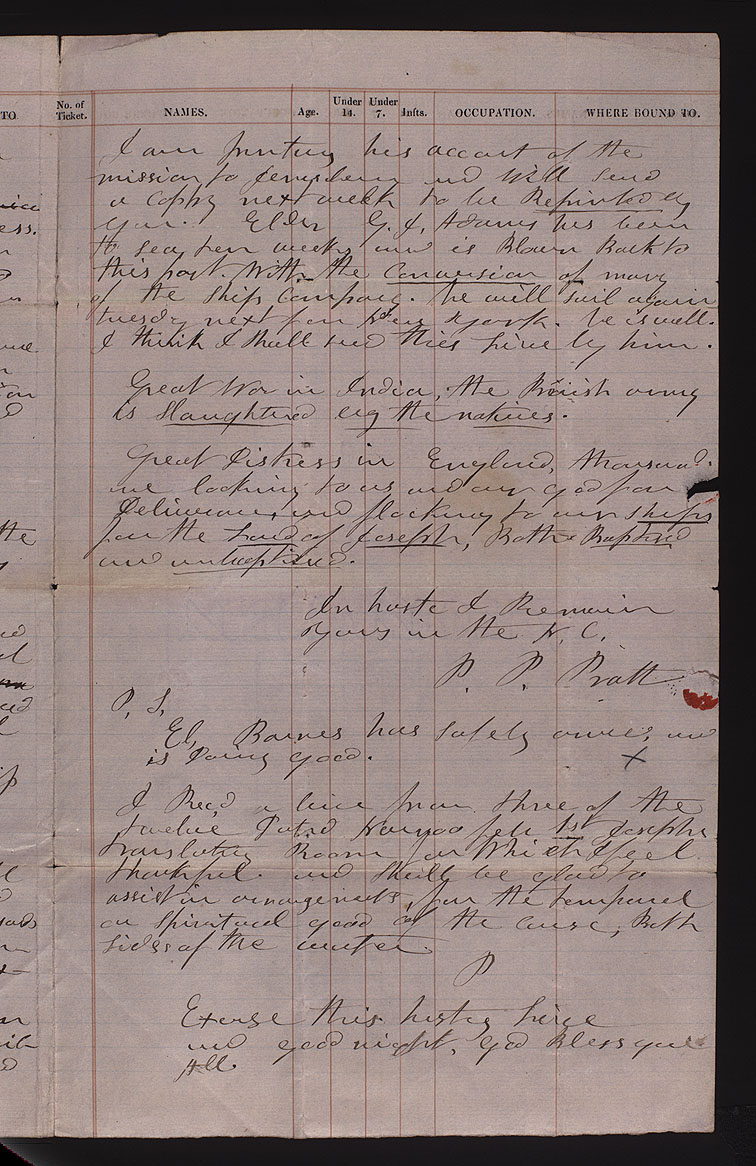 TO
No. of Ticket.
NAMES.
Age.
Under 14.
Under 7.
Infts.
OCCUPATION.
WHERE BOUND TO.
I am printing his account of the
mission to Jerusalem and will send
a coppy next week to be Reprinted by
you. Elder G. J. Adams has been
to sea ten weeks and is Blown Back to
this port with the Conversion of many
of the Ships Company. he will Sail again
tuesday next for New york. he is well.
I think I Shall send this line by him.
Great War in India, the British army
is Slaughtered by the natives.
Great Distress in England, thousands
are looking to us and our god for
Deliverance, and flocking to our Ships
for the Land of Joseph, Both Baptized
and unbaptized.
In haste I Remain
yours in the N. C.
P. P. Pratt
P. S.
El. Barnes has safely arrived, and
is Doing good.
I Rec,d a line from three of the
twelve Dated Nauvoo feb 1st Josephs
translating Room for Which I feel
thankful. and Shall be glad to
assist in arrangements, for the temporal
or Spiritual good of the cause, Both
sides of the water.
P
Excuse this hasty line
and good night, god Bless you
All.